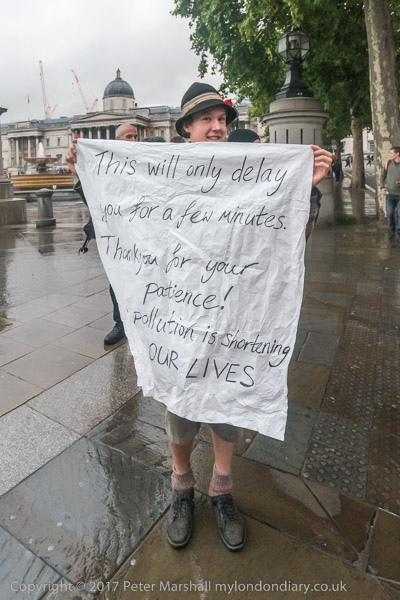 This will only delay
you for a few minutes.
Thankyou for your
patience!
pollution is shortening
OUR LIVES
Copyright © 2017 Peter Marshall mylondondiary.co.uk